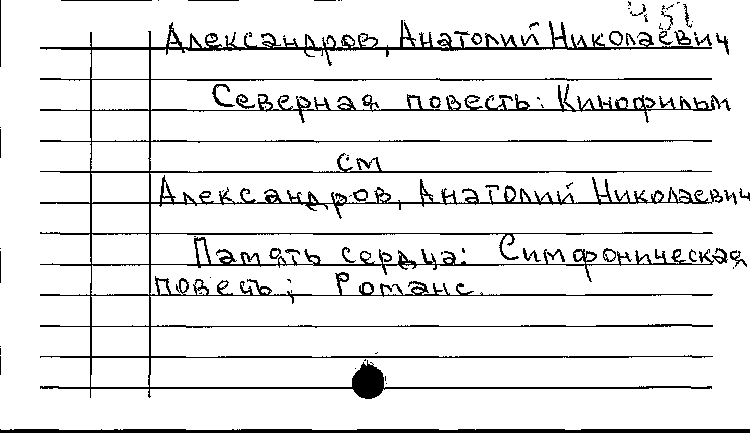 451
Александров, Анатолий Николаевич
Северная повесть: Кинофильм
см
Александров, Анатолий Николаевич
Память сердца: Симфоническая
повесть; Романс.